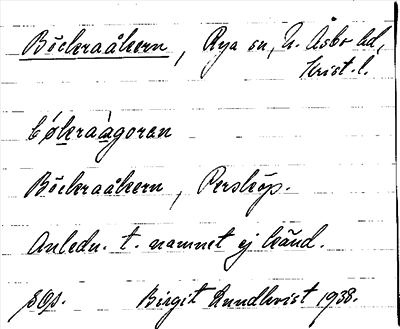 Böckraåkern, Rya sn, N. Åsbo hd,
Krist. l.
bǿkraàgoran
Böckraåkern, Perstorp.
Anledn. t. namnet ej känd.
Birgit Rundkvist 1938.